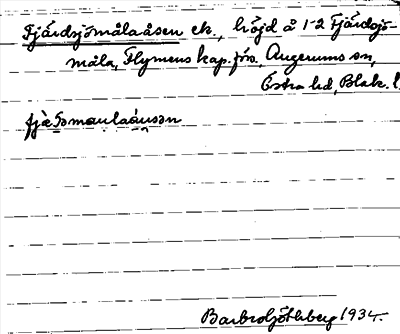 Fjärdsjömålaåsen ek., höjd å 1-2 Fjärdsjö-
måla, Flymens kap.förs. Augerums sn,
Östra hd, Blek. l.
Barbro Götheberg 1934.